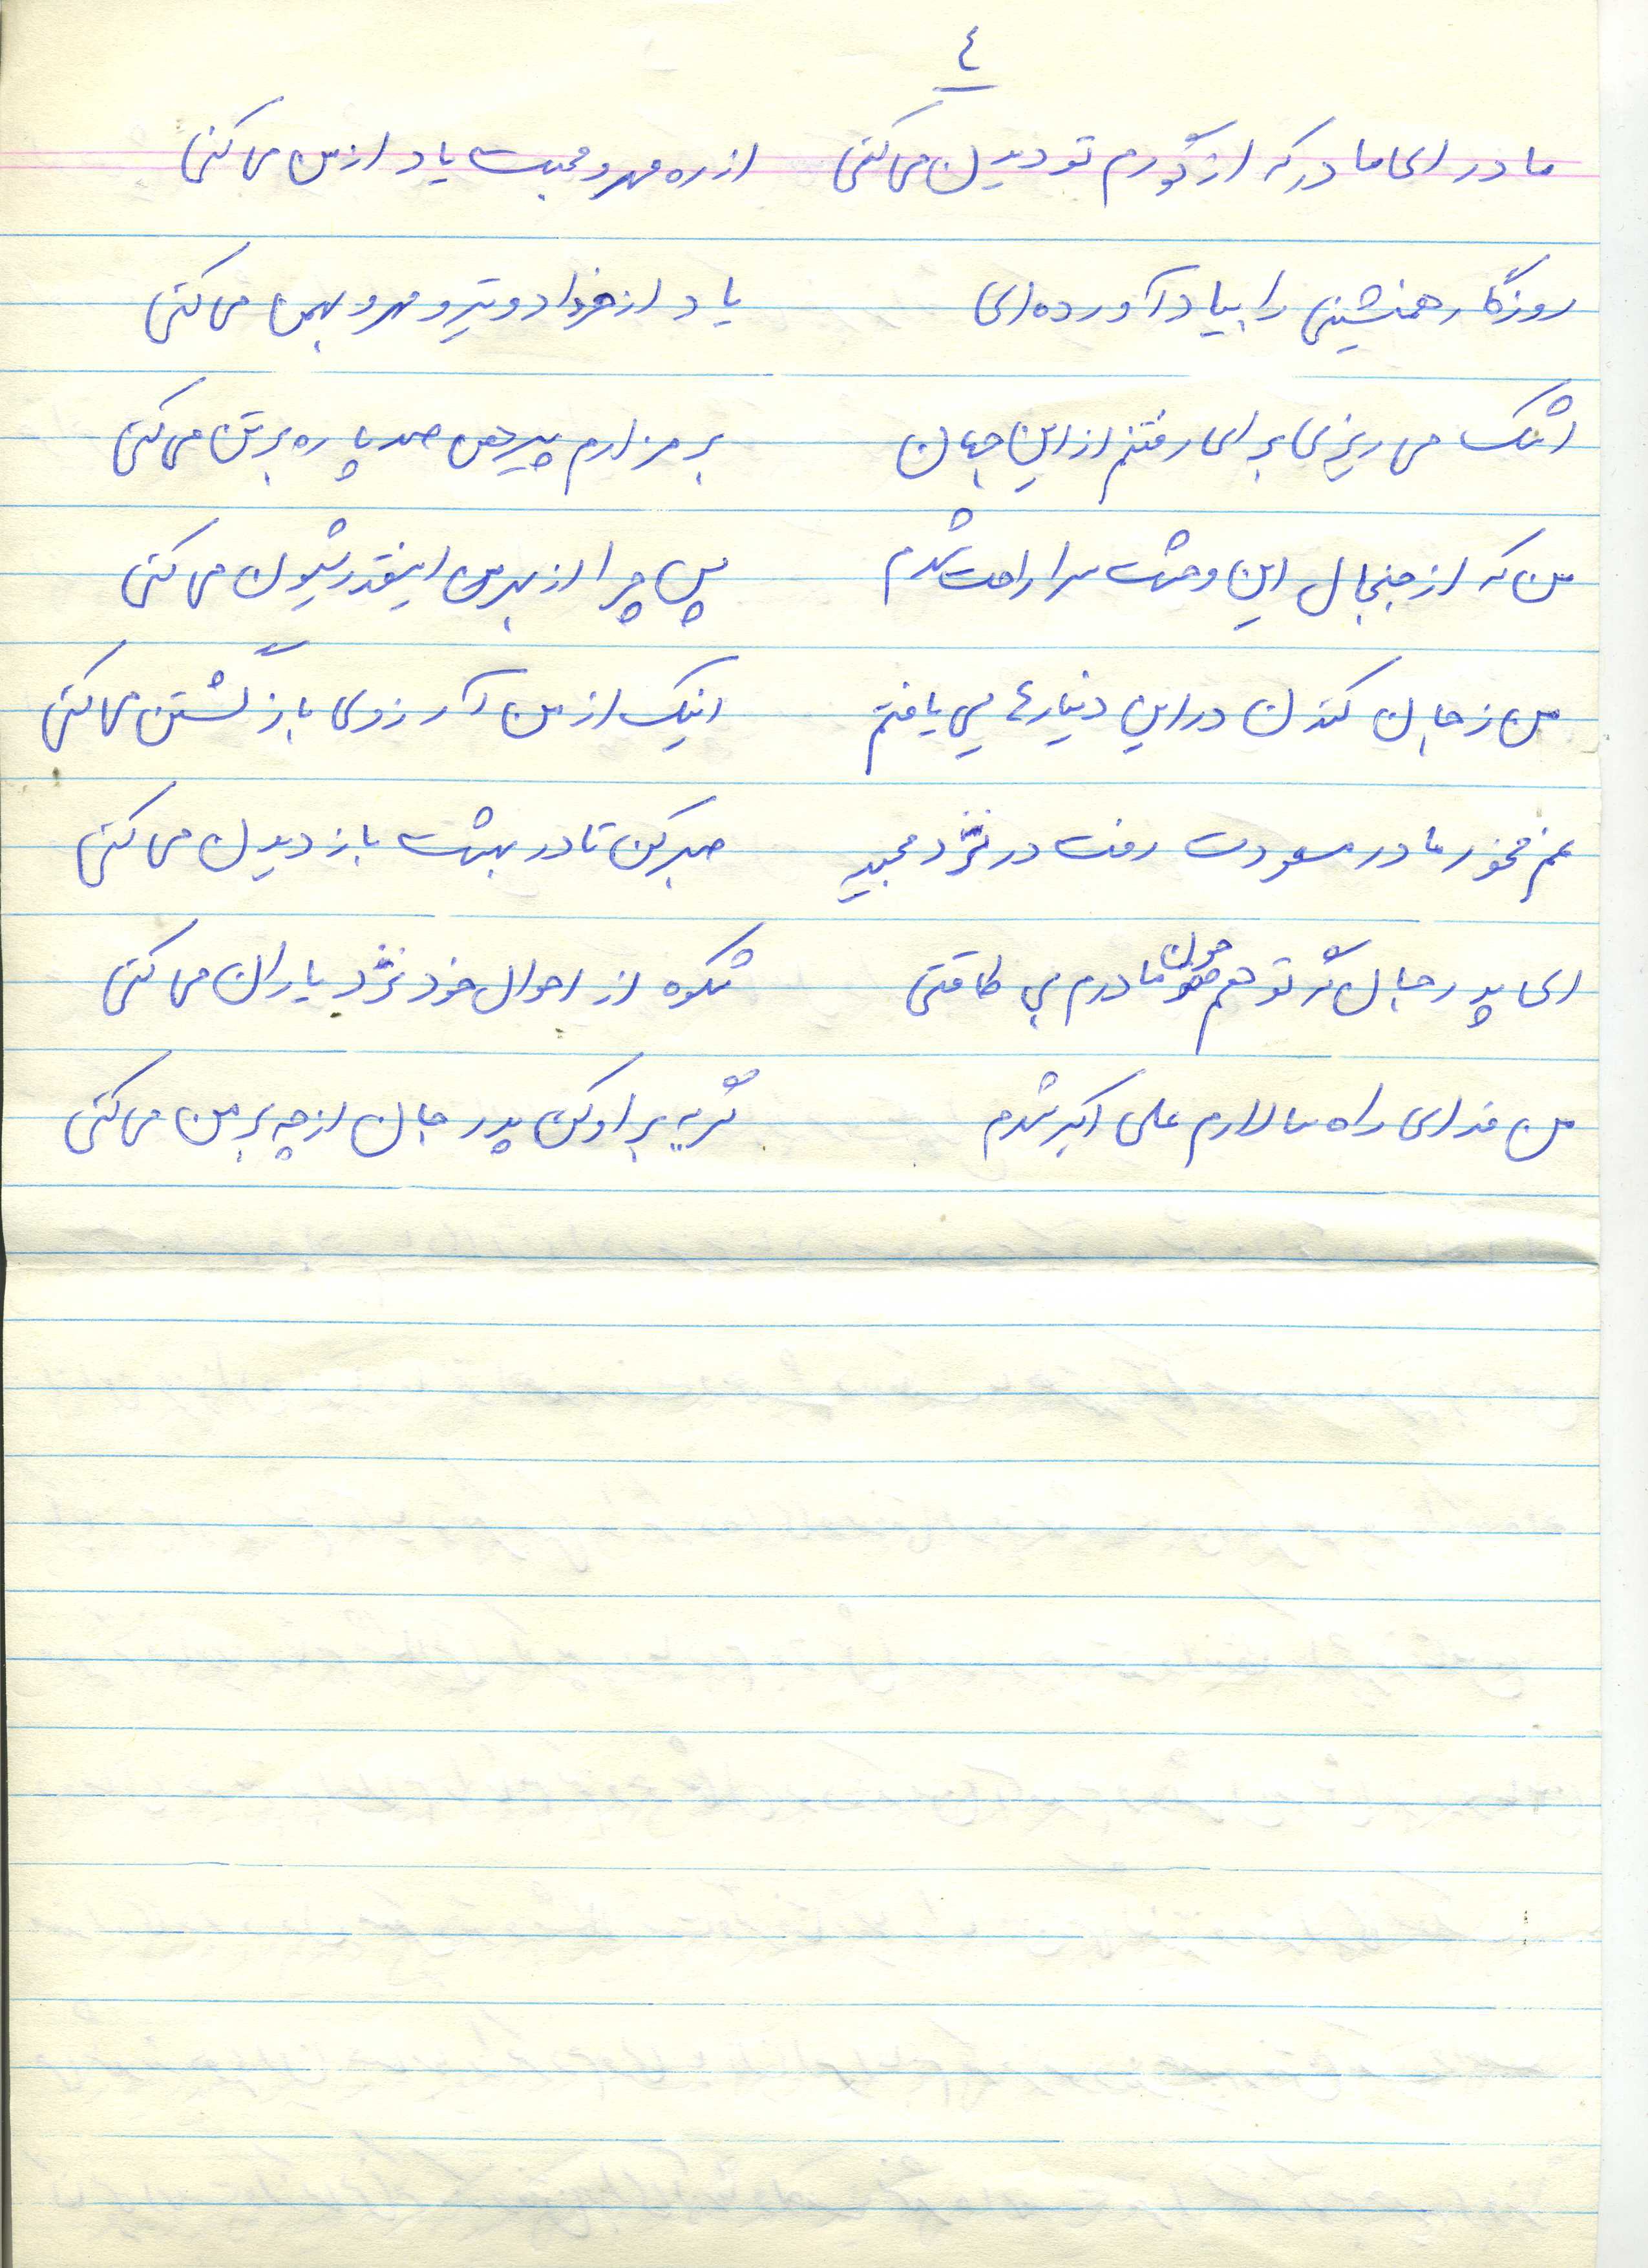 ٤
مادر ای مادر که از گورم تو دیدن می کنی از ره مهر و محبت یاد از من می کنی
روزگار همنشینی را بیاد آورده ای یاد از خرداد و تیر و مهر و بهمن می کنی
اشک می ریزی برای رفتنم از این جهان بر مزارم پیرهن صد پاره بر تن می کنی
من که از جنجال این وحشت سرا راحت شدم پس چرا از بهر من اینقدر شیون می کنی
من ز جان کندن در این دنیا رهایی یافتم اینک از من آرزوی بازگشتن می کنی
غم مخور مادر مسعودت رفت در نزد مجید صبر کن تا در بهشت باز دیدن می کنی
ای پدر جان گر تو هم چون مادرم بی طاقتی شکوه از احوال خود نزد یاران می کنی
من فدای راه سالارم علی اکبر شدم گریه بر او کن پدر جان از چه بر من می کنی